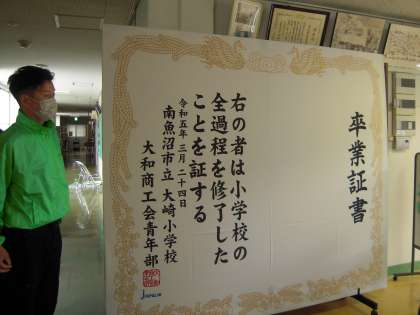 卒業証書
右の者は小学校の
全過程を修了した
ことを証する
令和五年三月二十四日
南魚沼市立大崎小学校
大和商工会青年部